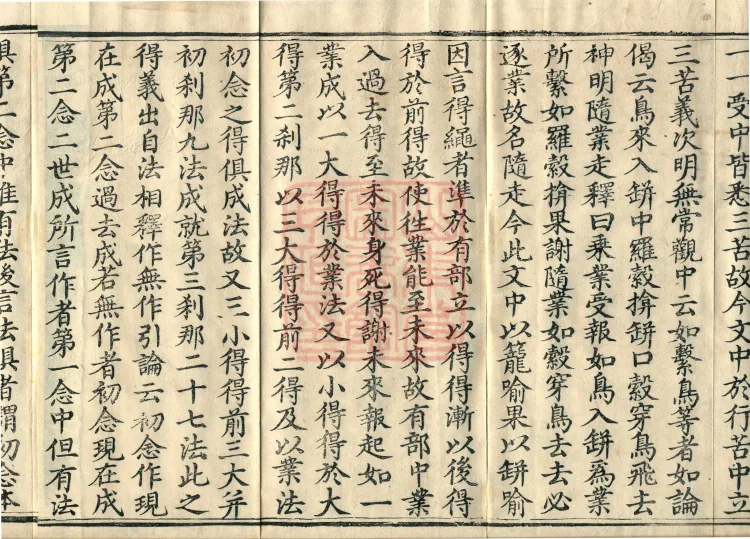 一一受中皆悉三苦故今文中於行苦中立
三苦義次明無常觀中云如繫鳥等者如論
偈云鳥來入缾中羅縠揜缾口縠穿鳥飛去
神明隨業走釋曰乘業受報如鳥入缾為業
所繫如羅縠揜果謝隨業如縠穿鳥去去必
逐業故名隨走今此文中以籠喻果以缾喻
因言得繩者準於有部立以得得漸以後得
得於前得故使往業能至未來故有部中業
入過去得至未來身死得謝未來報起如一
業成以一大得得於業法又以小得得於大
得第二剎那以三大得得前二得及以業法
初念之得俱成法故又三小得得前三大并
初剎那九法成就第三剎那二十七法此之
得義出自法相釋作無作引論云初念作現
在成第二念過去成若無作者初念現在成
第二念二世成所言作者第一念中但有法
俱第二念中唯有法後言法俱者謂初念本